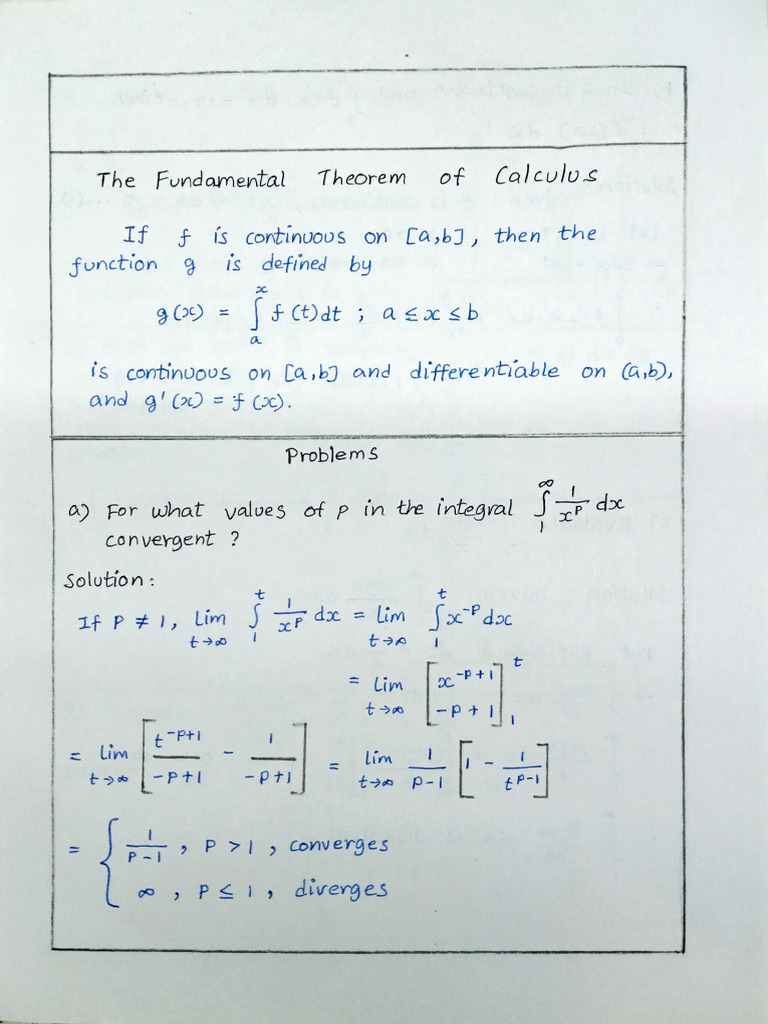 The Fundamental Theorem of Calculus
If f is continuous on [a,b], then the
function g is defined by
g(x) = ∫ₐˣ f(t)dt ; a ≤ x ≤ b
is continuous on [a,b] and differentiable on (a,b),
and g'(x) = f(x).
Problems
a) For what values of P in the integral ∫₁^∞ 1/x^P dx
convergent ?
Solution:
If P ≠ 1, Lim t→∞ ∫₁ᵗ 1/x^P dx = Lim t→∞ ∫₁ᵗ x^-P dx
= Lim t→∞ [x^-P+1 / -P+1]₁ᵗ
= Lim t→∞ [t^-P+1 / -P+1 - 1 / -P+1] = lim t→∞ 1/P-1 [1 - 1/t^P-1]
= { 1/P-1 , P > 1 , converges
∞ , P ≤ 1 , diverges